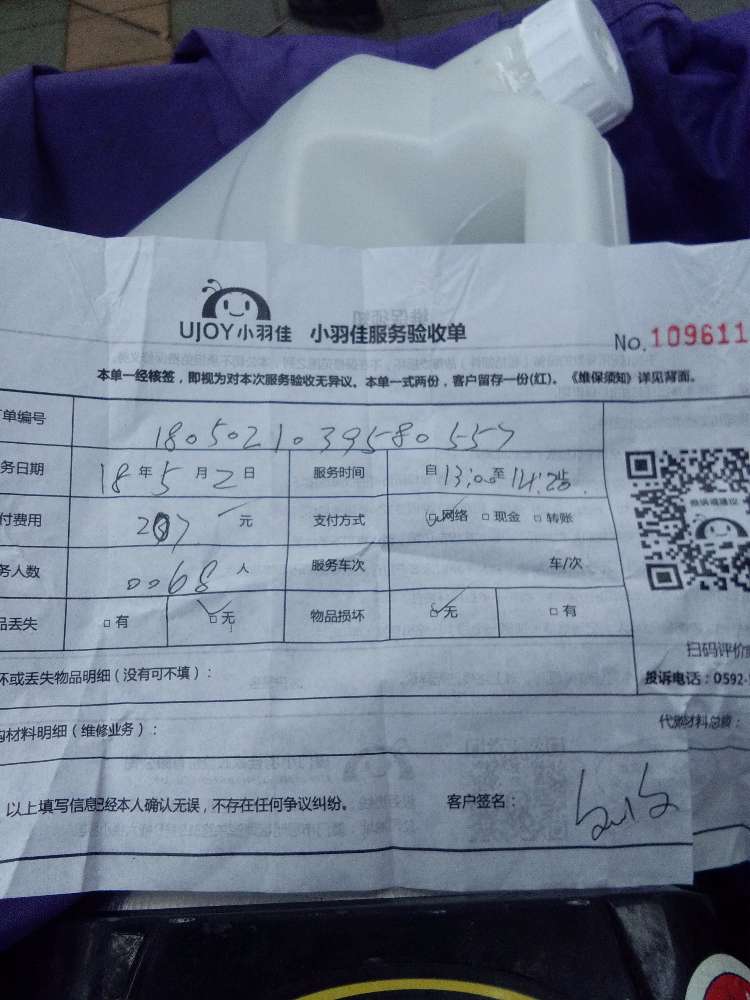 UJOY小羽佳 小羽佳服务验收单 No.109611
本单一经核签，即视为对本次服务验收无异议。本单一式两份，客户留存一份(红)。《维保须知》详见背面。
单编号 1805021039580557
务日期 18年5月2日 服务时间 自13:00至14:20止
付费用 元 支付方式 网络 □现金 □转账
务人数 0068人 服务车次 车/次
品丢失 □有 □无 物品损坏 □无 □有
扫码评价
坏或丢失物品明细（没有可不填）： 投诉电话：0592-
购材料明细（维修业务）： 代购材料总费：
以上填写信息已经本人确认无误，不存在任何争议纠纷。 客户签名：